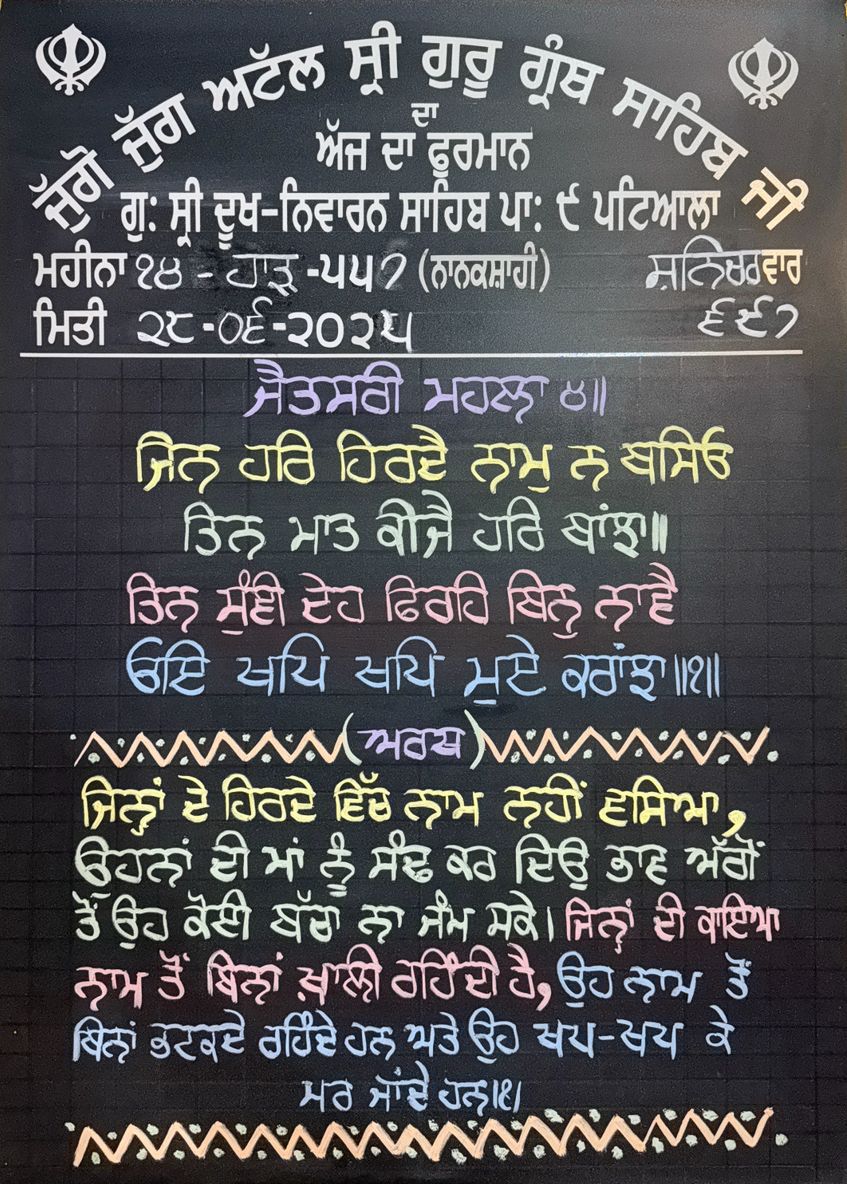 ਜੁੱਗੋ ਜੁੱਗ ਅਟੱਲ ਸ੍ਰੀ ਗੁਰੂ ਗ੍ਰੰਥ ਸਾਹਿਬ ਜੀ
ਦਾ
ਅੱਜ ਦਾ ਫੁਰਮਾਨ
ਗੁ: ਸ੍ਰੀ ਦੂਖ-ਨਿਵਾਰਨ ਸਾਹਿਬ ਪਾ: ੯ ਪਟਿਆਲਾ
ਮਹੀਨਾ ੧੪ - ਹਾੜ -੫੫੭ (ਨਾਨਕਸ਼ਾਹੀ) ਸ਼ਨਿਚਰਵਾਰ
ਮਿਤੀ ੨੮-੦੬-੨੦੨੫ ੬੯੭
ਜੈਤਸਰੀ ਮਹਲਾ ੪॥
ਜਿਨ ਹਰਿ ਹਿਰਦੈ ਨਾਮੁ ਨ ਬਸਿਓ
ਤਿਨ ਮਾਤ ਕੀਜੈ ਹਰਿ ਬਾਂਝਾ॥
ਤਿਨ ਸੁੰਞੀ ਦੇਹ ਫਿਰਹਿ ਬਿਨੁ ਨਾਵੈ
ਓਇ ਖਪਿ ਖਪਿ ਮੁਏ ਕਰਾਂਝਾ॥੧॥
(ਅਰਥ)
ਜਿਨ੍ਹਾਂ ਦੇ ਹਿਰਦੇ ਵਿੱਚ ਨਾਮ ਨਹੀਂ ਵਸਿਆ,
ਉਹਨਾਂ ਦੀ ਮਾਂ ਨੂੰ ਸੰਢ ਕਰ ਦਿਉ ਭਾਵ ਅੱਗੋਂ
ਤੋਂ ਉਹ ਕੋਈ ਬੱਚਾ ਨਾ ਜੰਮ ਸਕੇ। ਜਿਨ੍ਹਾਂ ਦੀ ਕਾਇਆ
ਨਾਮ ਤੋਂ ਬਿਨਾਂ ਖ਼ਾਲੀ ਰਹਿੰਦੀ ਹੈ, ਉਹ ਨਾਮ ਤੋਂ
ਬਿਨਾਂ ਭਟਕਦੇ ਰਹਿੰਦੇ ਹਨ ਅਤੇ ਉਹ ਖਪ-ਖਪ ਕੇ
ਮਰ ਜਾਂਦੇ ਹਨ।੧।